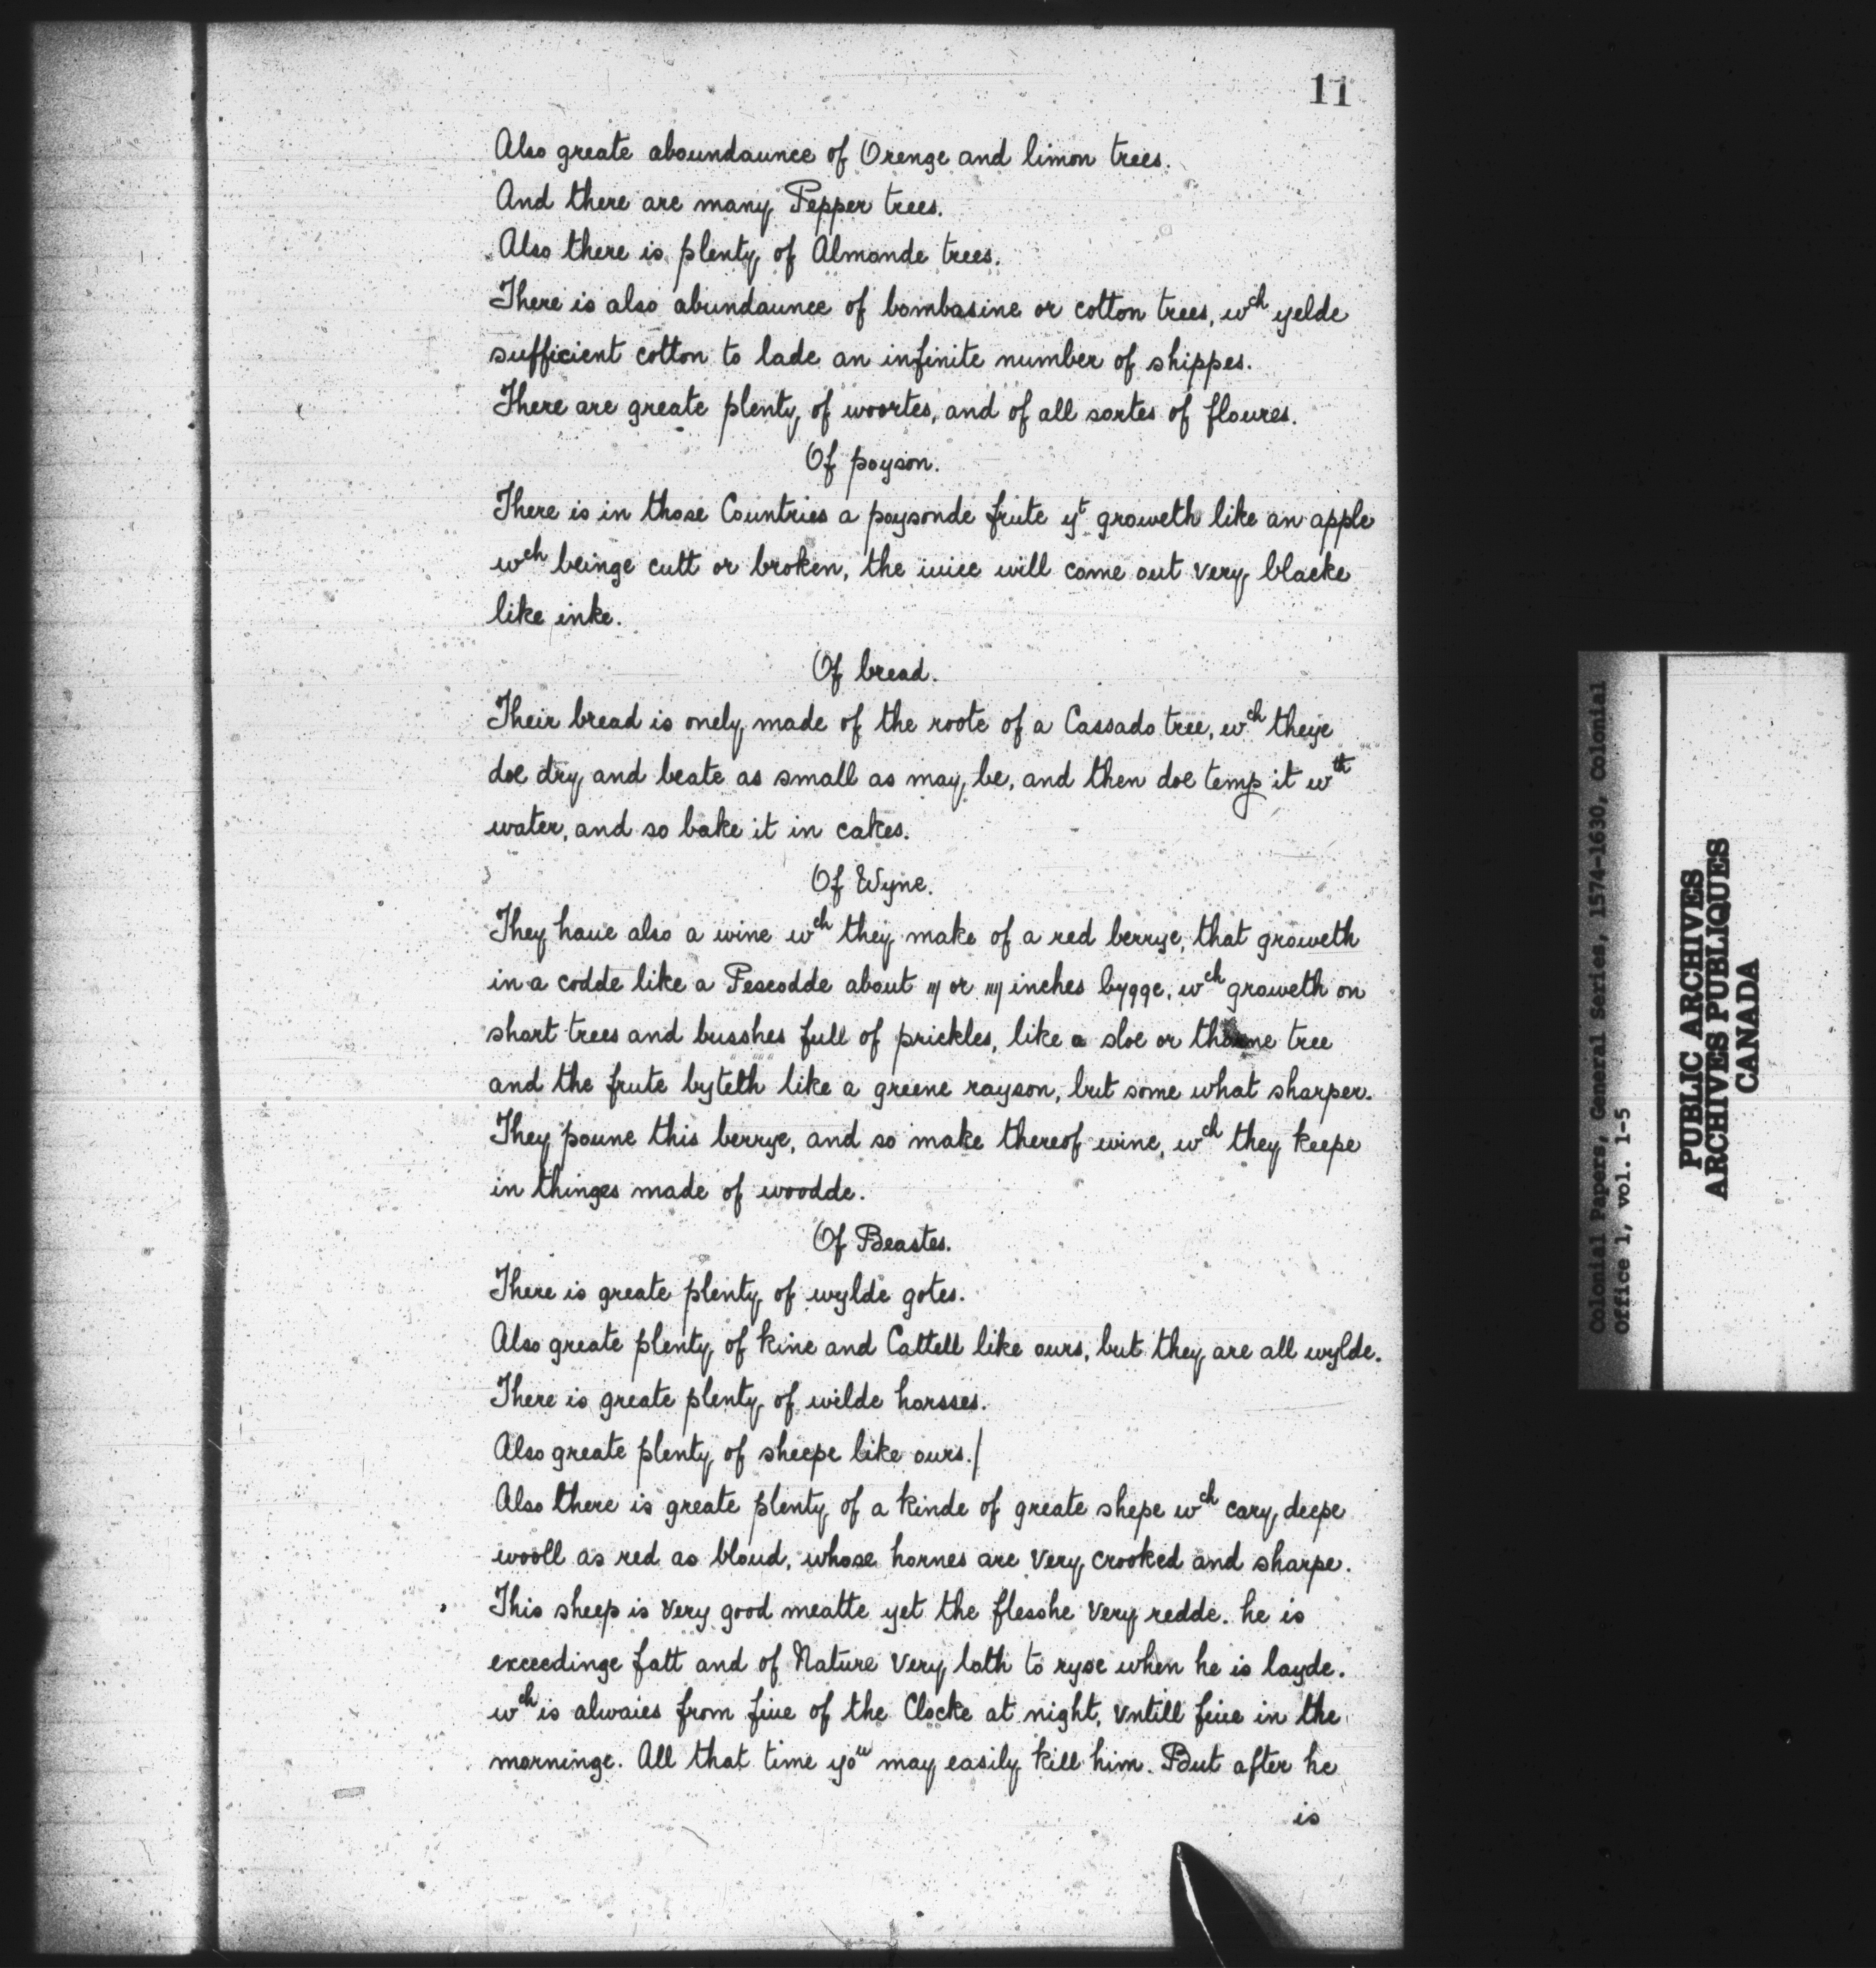 11
Also greate aboundaunce of Orenge and limon trees.
And there are many Pepper trees.
Also there is plenty of Almonde trees.
There is also abundaunce of bombasine or cotton trees, wch yelde
sufficient cotton to lade an infinite number of shippes.
There are greate plenty of woortes, and of all sortes of floures.
Of poyson.
There is in those Countries a poysonde frute yt groweth like an apple
wch beinge cutt or broken, the iuice will come out very blacke
like inke.
Of bread.
Their bread is onely made of the roote of a Cassado tree, wch theye
doe dry and beate as small as may be, and then doe temp it wth
water, and so bake it in cakes.
Of Wyne.
They haue also a wine wch they make of a red berrye, that groweth
in a codde like a Pescodde about iij or iiij inches bygge, wch groweth on
short trees and busshes full of prickles, like a sloe or thorne tree
and the frute byteth like a greene rayson, but some what sharper.
They poune this berrye, and so make thereof wine, wch they keepe
in thinges made of woodde.
Of Beastes.
There is greate plenty of wylde gotes.
Also greate plenty of kine and Cattell like ours, but they are all wylde.
There is greate plenty of wilde horsses.
Also greate plenty of sheepe like ours./
Also there is greate plenty of a kinde of greate shepe wch cary deepe
wooll as red as bloud, whose hornes are very crooked and sharpe.
This sheep is very good meatte yet the flesshe very redde. he is
exceedinge fatt and of Nature very loth to ryse when he is layde.
wch is alwaies from fiue of the Clocke at night, vntill fiue in the
morninge. All that time you may easily kill him. But after he
is
Colonial Papers, General Series, 1574-1630, Colonial
Office 1, vol. 1-5
PUBLIC ARCHIVES
ARCHIVES PUBLIQUES
CANADA